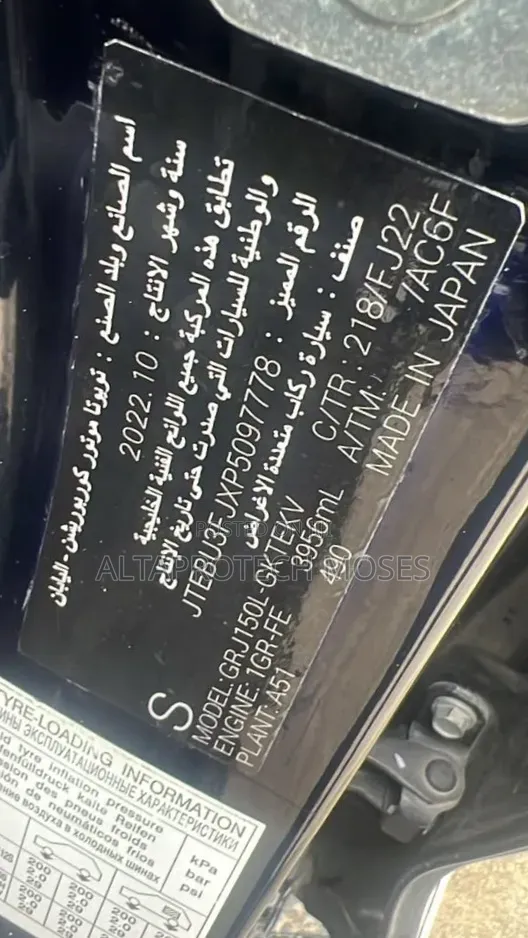 اسم الصانع وبلد الصنع : تويوتا موتور كوربوريشن - اليابان
سنة وشهر الانتاج : 2022.10
تطابق هذه المركبة جميع اللوائح الفنية الخليجية
والوطنية للسيارات التي صدرت حتى تاريخ الإنتاج
الرقم المميز : JTEBU3FJXP5097778
صنف : سيارة ركاب متعددة الاغراض
S
MODEL: GRJ150L-GKTEKV
ENGINE: 1GR-FE 3956mL
PLANT: A51 490
C/TR: 218/FJ22
A/TM: /AC6F
MADE IN JAPAN
POSTED ON
ALTAPROTECH MOSES
TYRE-LOADING INFORMATION
ЭКСПЛУАТАЦИОННЫЕ ХАРАКТЕРИСТИКИ
tyre inflation pressure
kalte Reifen
des pneus froids
de neumáticos frios
воздуха в холодных шинах
kPa
bar
psi
200 200
2.0 2.0
29 29